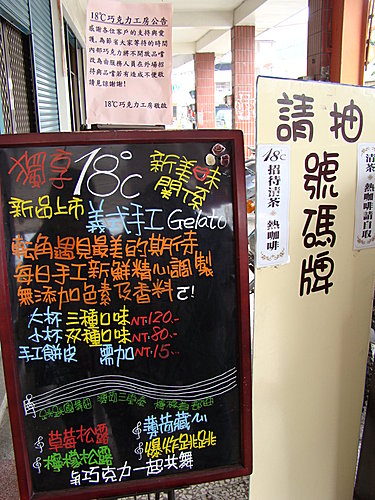 18℃巧克力工房公告
感謝各位客戶的支持與愛
護,為節省大家等待的時間
內部巧克力將不開放品嚐
改為由服務人員在外場招
待與品嚐若有造成不便敬
請見諒謝謝!
18℃巧克力工房敬啟
獨享18℃
新美味
關係
新品上市 義式手工Gelato
轉角遇見最美的期待
每日手工新鮮精心調製
無添加色素及香料ㄛ!
大杯 三種口味 NT.120.-
小杯 双種口味 NT.80.-
手工餅皮 需加 NT.15.-
草莓松露
薄荷藏心
檸檬松露
爆炸跳跳
與巧克力一起共舞
請抽
號碼牌
18℃招待清茶、熱咖啡
清茶、熱咖啡請自取